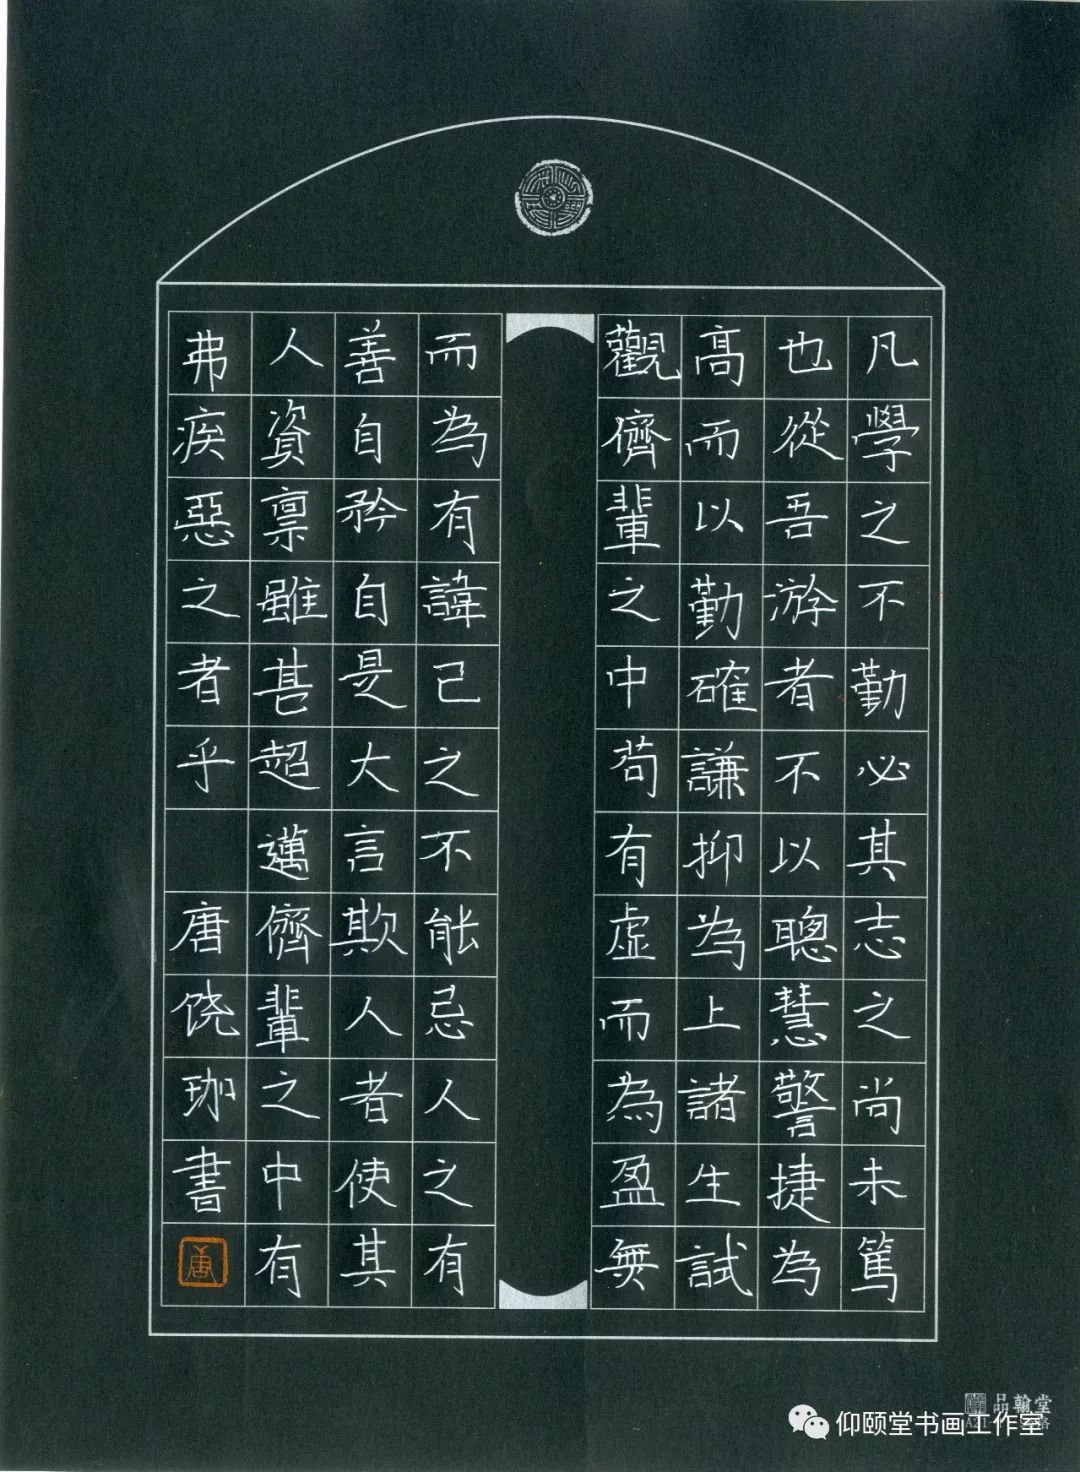 凡學之不勤必其志之尚未篤
也從吾游者不以聰慧警捷為
高而以勤確謙抑為上諸生試
觀儕輩之中苟有虛而為盈無
而為有諱己之不能忌人之有
善自矜自是大言欺人者使其
人資禀雖甚超邁儕輩之中有
弗疾惡之者乎 唐饶珈書
唐
品翰堂
仰颐堂书画工作室